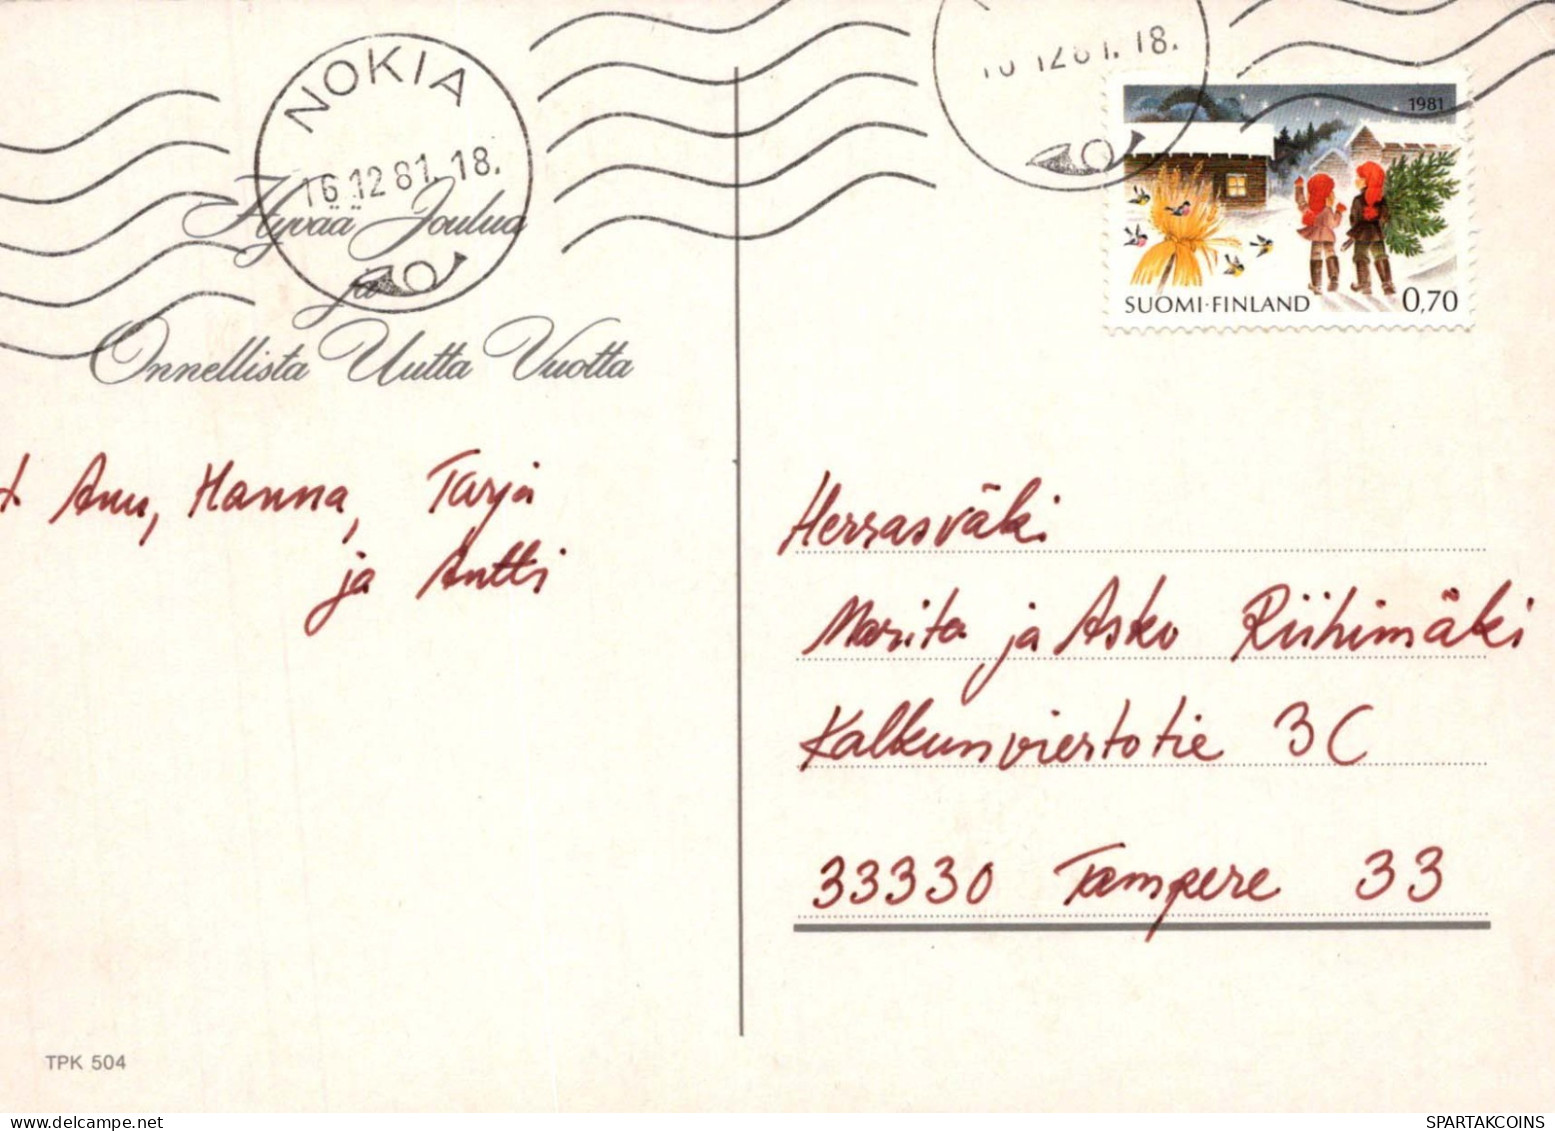 NOKIA
16.12 81. 18.
12 8 1. 18.
1981
SUOMI·FINLAND 0,70
Hyvää Joulua
ja
Onnellista Uutta Vuotta
Anu, Hanna, Tarja
ja Antti
Herrasväki
Marita ja Asko Riihimäki
Kalkunviertotie 3C
33330 Tampere 33
TPK 504
SPARTAKCOINS